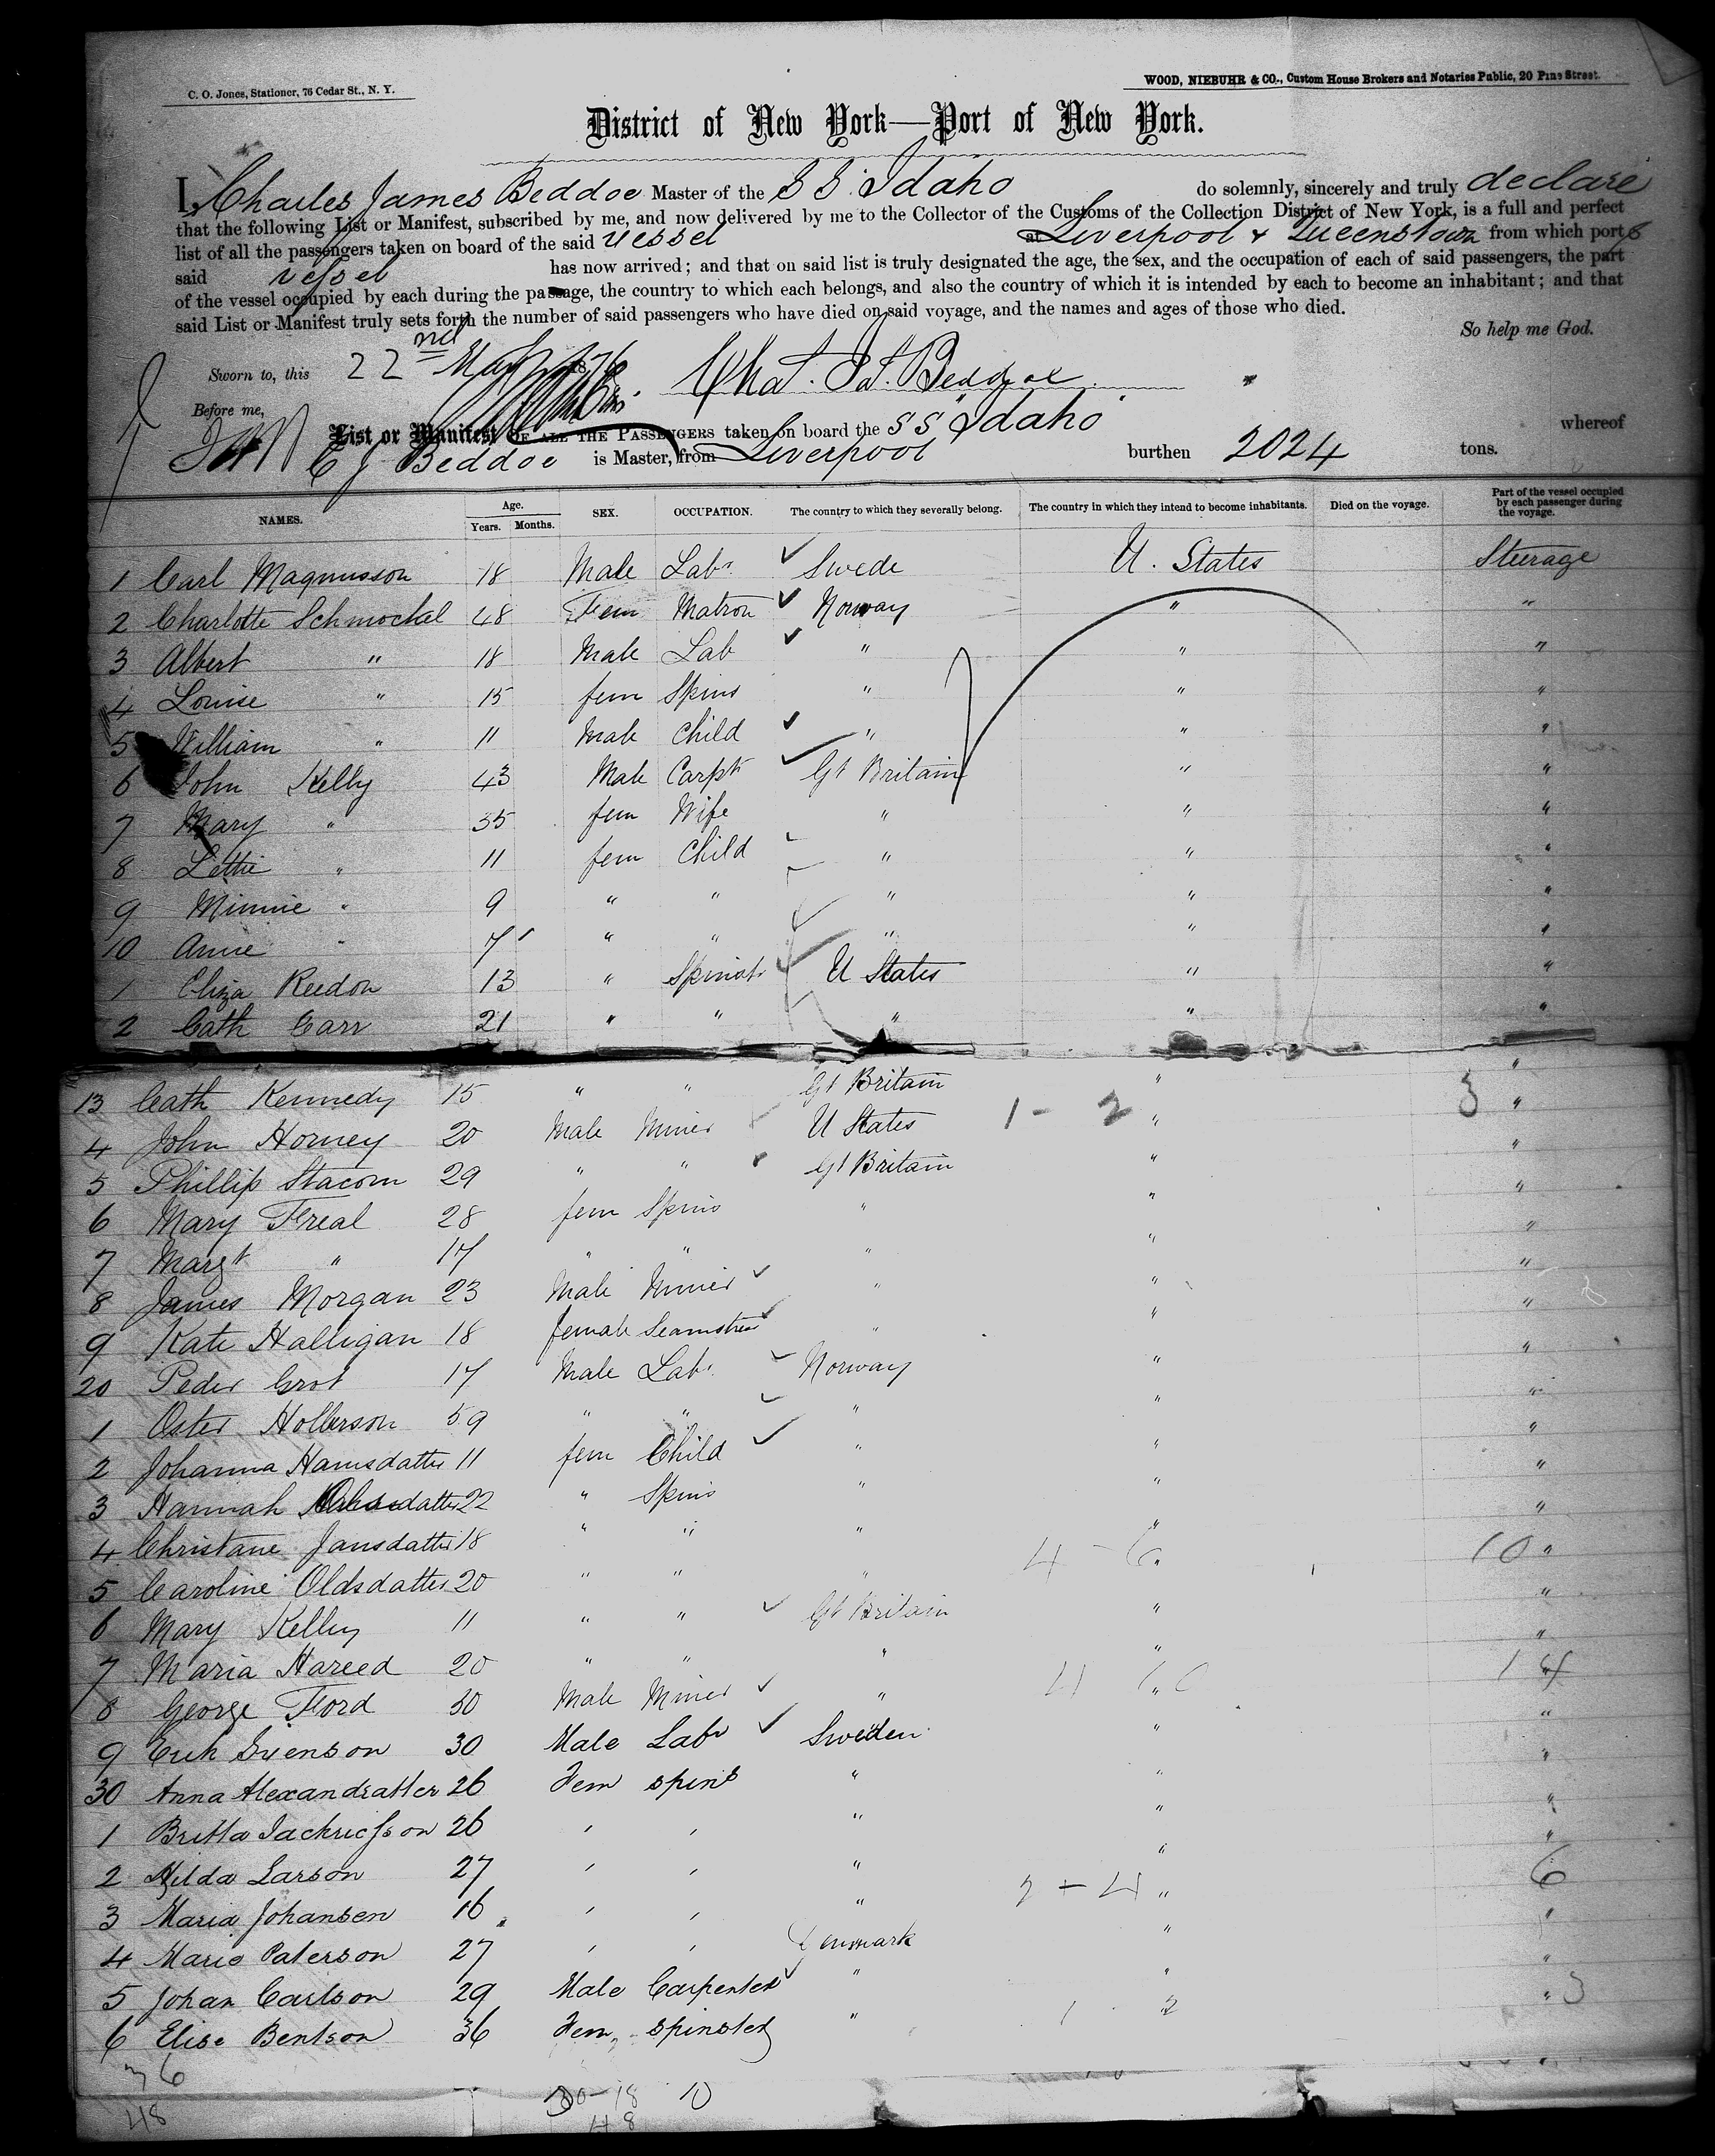 C. O. Jones, Stationer, 76 Cedar St., N. Y.
WOOD, NIEBUHR & CO., Custom House Brokers and Notaries Public, 20 Pine Street.
District of New York—Port of New York.
I, Charles James Beddoe Master of the S S. Idaho do solemnly, sincerely and truly declare
that the following List or Manifest, subscribed by me, and now delivered by me to the Collector of the Customs of the Collection District of New York, is a full and perfect
list of all the passengers taken on board of the said vessel at Liverpool & Queenstown from which ports
said vessel has now arrived; and that on said list is truly designated the age, the sex, and the occupation of each of said passengers, the part
of the vessel occupied by each during the passage, the country to which each belongs, and also the country of which it is intended by each to become an inhabitant; and that
said List or Manifest truly sets forth the number of said passengers who have died on said voyage, and the names and ages of those who died.
So help me God.
Sworn to, this 22nd May 1876 Chas. Js. Beddoe
Before me,
List or Manifest OF ALL THE PASSENGERS taken on board the S S "Idaho" whereof
C J Beddoe is Master, from Liverpool burthen 2024 tons.
NAMES. Age. Years. Months. SEX. OCCUPATION. The country to which they severally belong. The country in which they intend to become inhabitants. Died on the voyage. Part of the vessel occupied by each passenger during the voyage.
1 Carl Magnusson 18 Male Labr Swede U. States Steerage
2 Charlotte Schmockel 48 Fem Matron Norway " "
3 Albert " 18 Male Lab " " "
4 Louise " 15 fem Spins " " "
5 William " 11 Male Child " " "
6 John Kelly 43 Male Carptr Gt Britain " "
7 Mary " 35 fem Wife " " "
8 Lettie " 11 fem Child " " "
9 Minnie " 9 " " " " "
10 Anne " 7 " " " " "
1 Eliza Reedon 13 " Spinstr U States " "
2 Cath Carr 21 " " " " "
13 Cath Kennedy 15 " " Gt Britain " "
4 John Horney 20 Male Miner U States 1 - 2 " 3 "
5 Phillip Stacom 29 " " Gt Britain " "
6 Mary Freal 28 fem Spins " " "
7 Margt " 17 " " " " "
8 James Morgan 23 Male Miner " " "
9 Kate Halligan 18 female Seamstress " " "
20 Peder Grot 17 Male Labr Norway " "
1 Oster Hollerson 59 " " " " "
2 Johanna Hansdatter 11 fem Child " " "
3 Hannah 22 " Spins " " "
4 Christane Jansdatter 18 " " " 4 - 6 " 10 "
5 Caroline Oldsdatter 20 " " " " "
6 Mary Kelley 11 " " Gt Britain " "
7 Maria Hareed 20 " " " " 14
8 George Ford 30 Male Miner " " "
9 Erik Svenson 30 Male Labr Sweden " "
30 Anna Alexandratter 26 Fem spins " " "
1 Britta Jackriesson 26 " " " " "
2 Hilda Larson 27 " " " " 6
3 Maria Johansen 16 " " " 2 + 4 " "
4 Marie Paterson 27 " " Denmark " "
5 Johan Carlson 29 Male Carpenter " " " 3
6 Elise Bentson 36 Fem spinster " 1 2
36
48
30-18 10
48